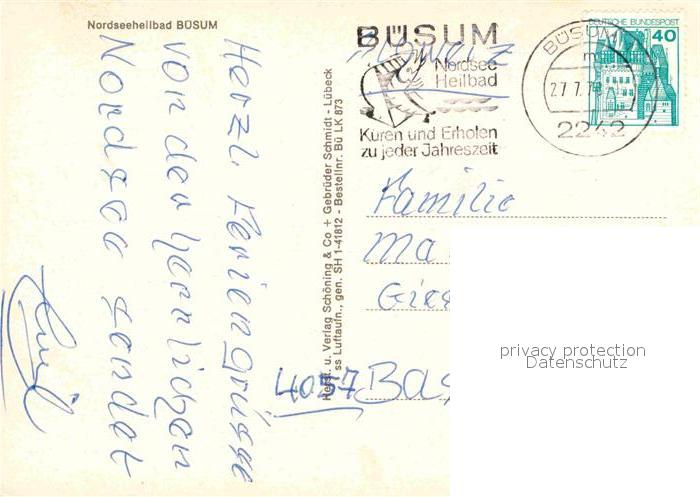 Nordseeheilbad BÜSUM
Herzl. Feriengrüsse
von der herrlichen
Nordsee sendet
Herst. u. Verlag Schöning & Co + Gebrüder Schmidt - Lübeck
ss Luftaufn., gen. SH 1-41812 - Bestellnr. Bü LK 873
BÜSUM
Nordsee
Heilbad
Kuren und Erholen
zu jeder Jahreszeit
BÜSUM
27.7.79
2242
DEUTSCHE BUNDESPOST
40
Familie
Ma
4057 Bas
privacy protection
Datenschutz